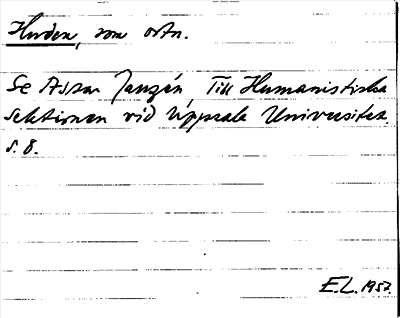 Hurden, som ortn.
Se Assar Janzén, Till Humanistiska
sektionen vid Uppsala Universitet
s. 8.
E.L. 1957.